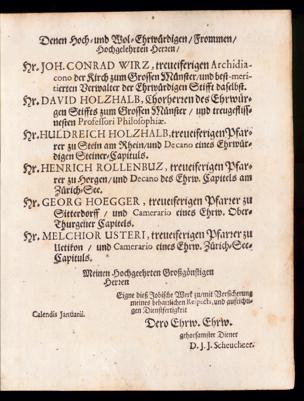 Denen Hoch-und Wol-Ehrwürdigen, Frommen/
Hochgelehrten Herren/
Hr. JOH. CONRAD WIRZ, treueiferigen Archidia-
cono der Kirch zum Grossen Münster/ und best-meri-
tierten Verwalter der Ehrwürdigen Stifft daselbst.
Hr. DAVID HOLZHALB, Chorherren des Ehrwür-
gen Stiffts zum Grossen Münster/ und treugefliss-
nesten Professori Philosophiæ.
Hr. HULDREICH HOLZHALB, treueiferigen Pfar-
rer zu Stein am Rhein/und Decano eines Ehrwür-
digen Steiner-Capituls.
Hr. HENRICH ROLLENBUZ, treueiferigen Pfar-
rer zu Horgen/ und Decano des Ehrw. Capitels am
Zürich-See.
Hr. GEORG HOEGGER, treueiferigen Pfarrer zu
Sitterdorff/ und Camerario eines Ehrw. Ober-
Thurgeüer Capitels.
Hr. MELCHIOR USTERI, treueiferigen Pfarrer zu
Uetikon/ und Camerario eines Ehrw. Zürich-See-
Capituls.
Meinen Hochgeehrten Großgönstigen
Herren
Eigne dieß Jobische Werk zu/mit Versicherung
meines beharrlichen Respects, und aufrichti-
gen Dienstfertigkeit
Calendis Januarii.
Dero Ehrw. Ehrw.
gehorsamster Diener
D. J. J. Scheuchzer.